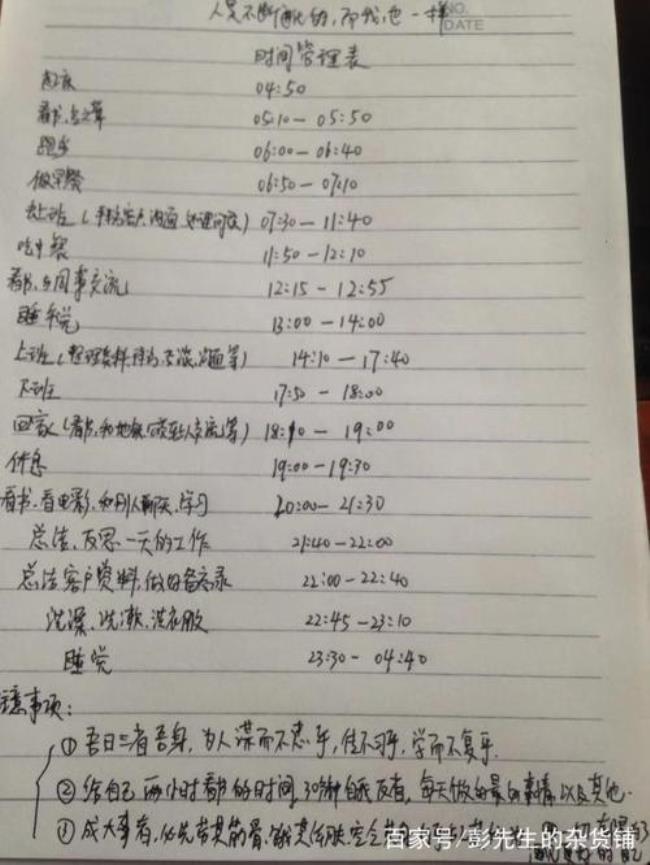 人是不断变化的,而我也一样
NO.
DATE
时间管理表
起床 04:50
看书 05:10—05:50
跑步 06:00—06:40
做早餐 06:50—07:10
去上班(和客户沟通 处理问题) 07:30—11:40
吃中餐 11:50—12:10
看书、与同事交流 12:15—12:55
睡午觉 13:00—14:00
上班(整理资料 沟通等) 14:10—17:40
下班 17:50—18:00
回家(看书,和地铁 人交流等) 18:10—19:00
休息 19:00—19:30
看书、看电影、和别人聊天、学习 20:00—21:30
总结、反思一天的工作 21:40—22:00
总结客户资料,做好备忘录 22:00—22:40
洗澡、洗漱、洗衣服 22:45—23:10
睡觉 23:30—04:40
注意事项:
① 吾日三省吾身,为人谋而不忠乎,传不习乎,学而不复乎.
② 给自己两小时看书的时间,30分钟自我反省,每天做的最 的事情以及其他.
③ 成大事者,必先苦其筋骨,饿其体肤,空乏其身
百家号/彭先生的杂货铺